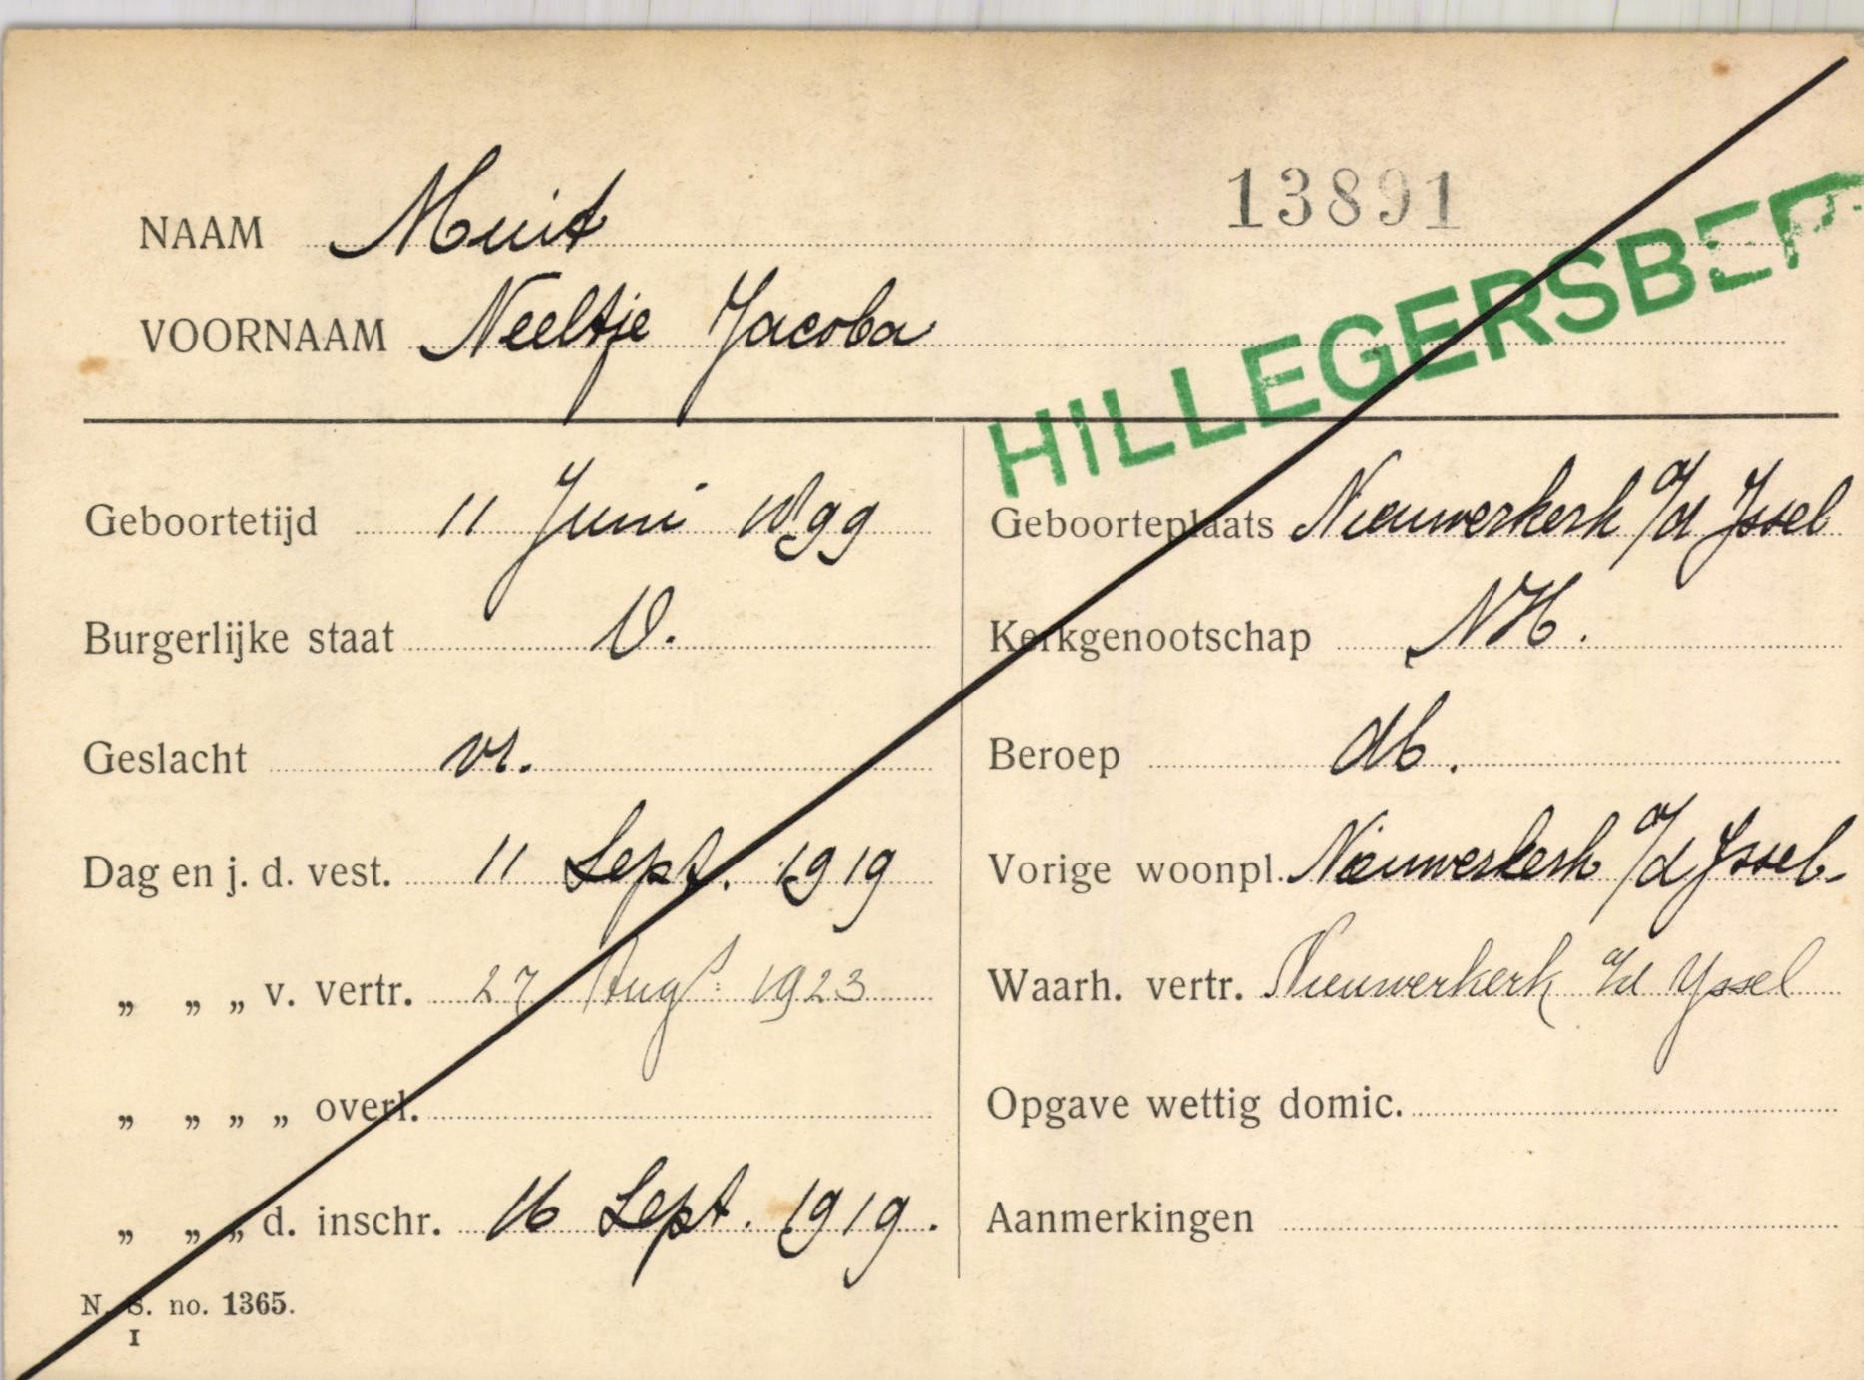 13891
NAAM Muit
VOORNAAM Neeltje Jacoba
HILLEGERSBER
Geboortetijd 11 Juni 1899
Burgerlijke staat O.
Geslacht vr.
Dag en j. d. vest. 11 Sept. 1919
„ „ „ v. vertr. 27 Augs: 1923
„ „ „ „ overl.
„ „ „ d. inschr. 16 Sept. 1919.
N. S. no. 1365.
I
Geboorteplaats Nieuwerkerk a/d Yssel
Kerkgenootschap NH.
Beroep db.
Vorige woonpl. Nieuwerkerk a/d Yssel.
Waarh. vertr. Nieuwerkerk a/d Yssel
Opgave wettig domic.
Aanmerkingen